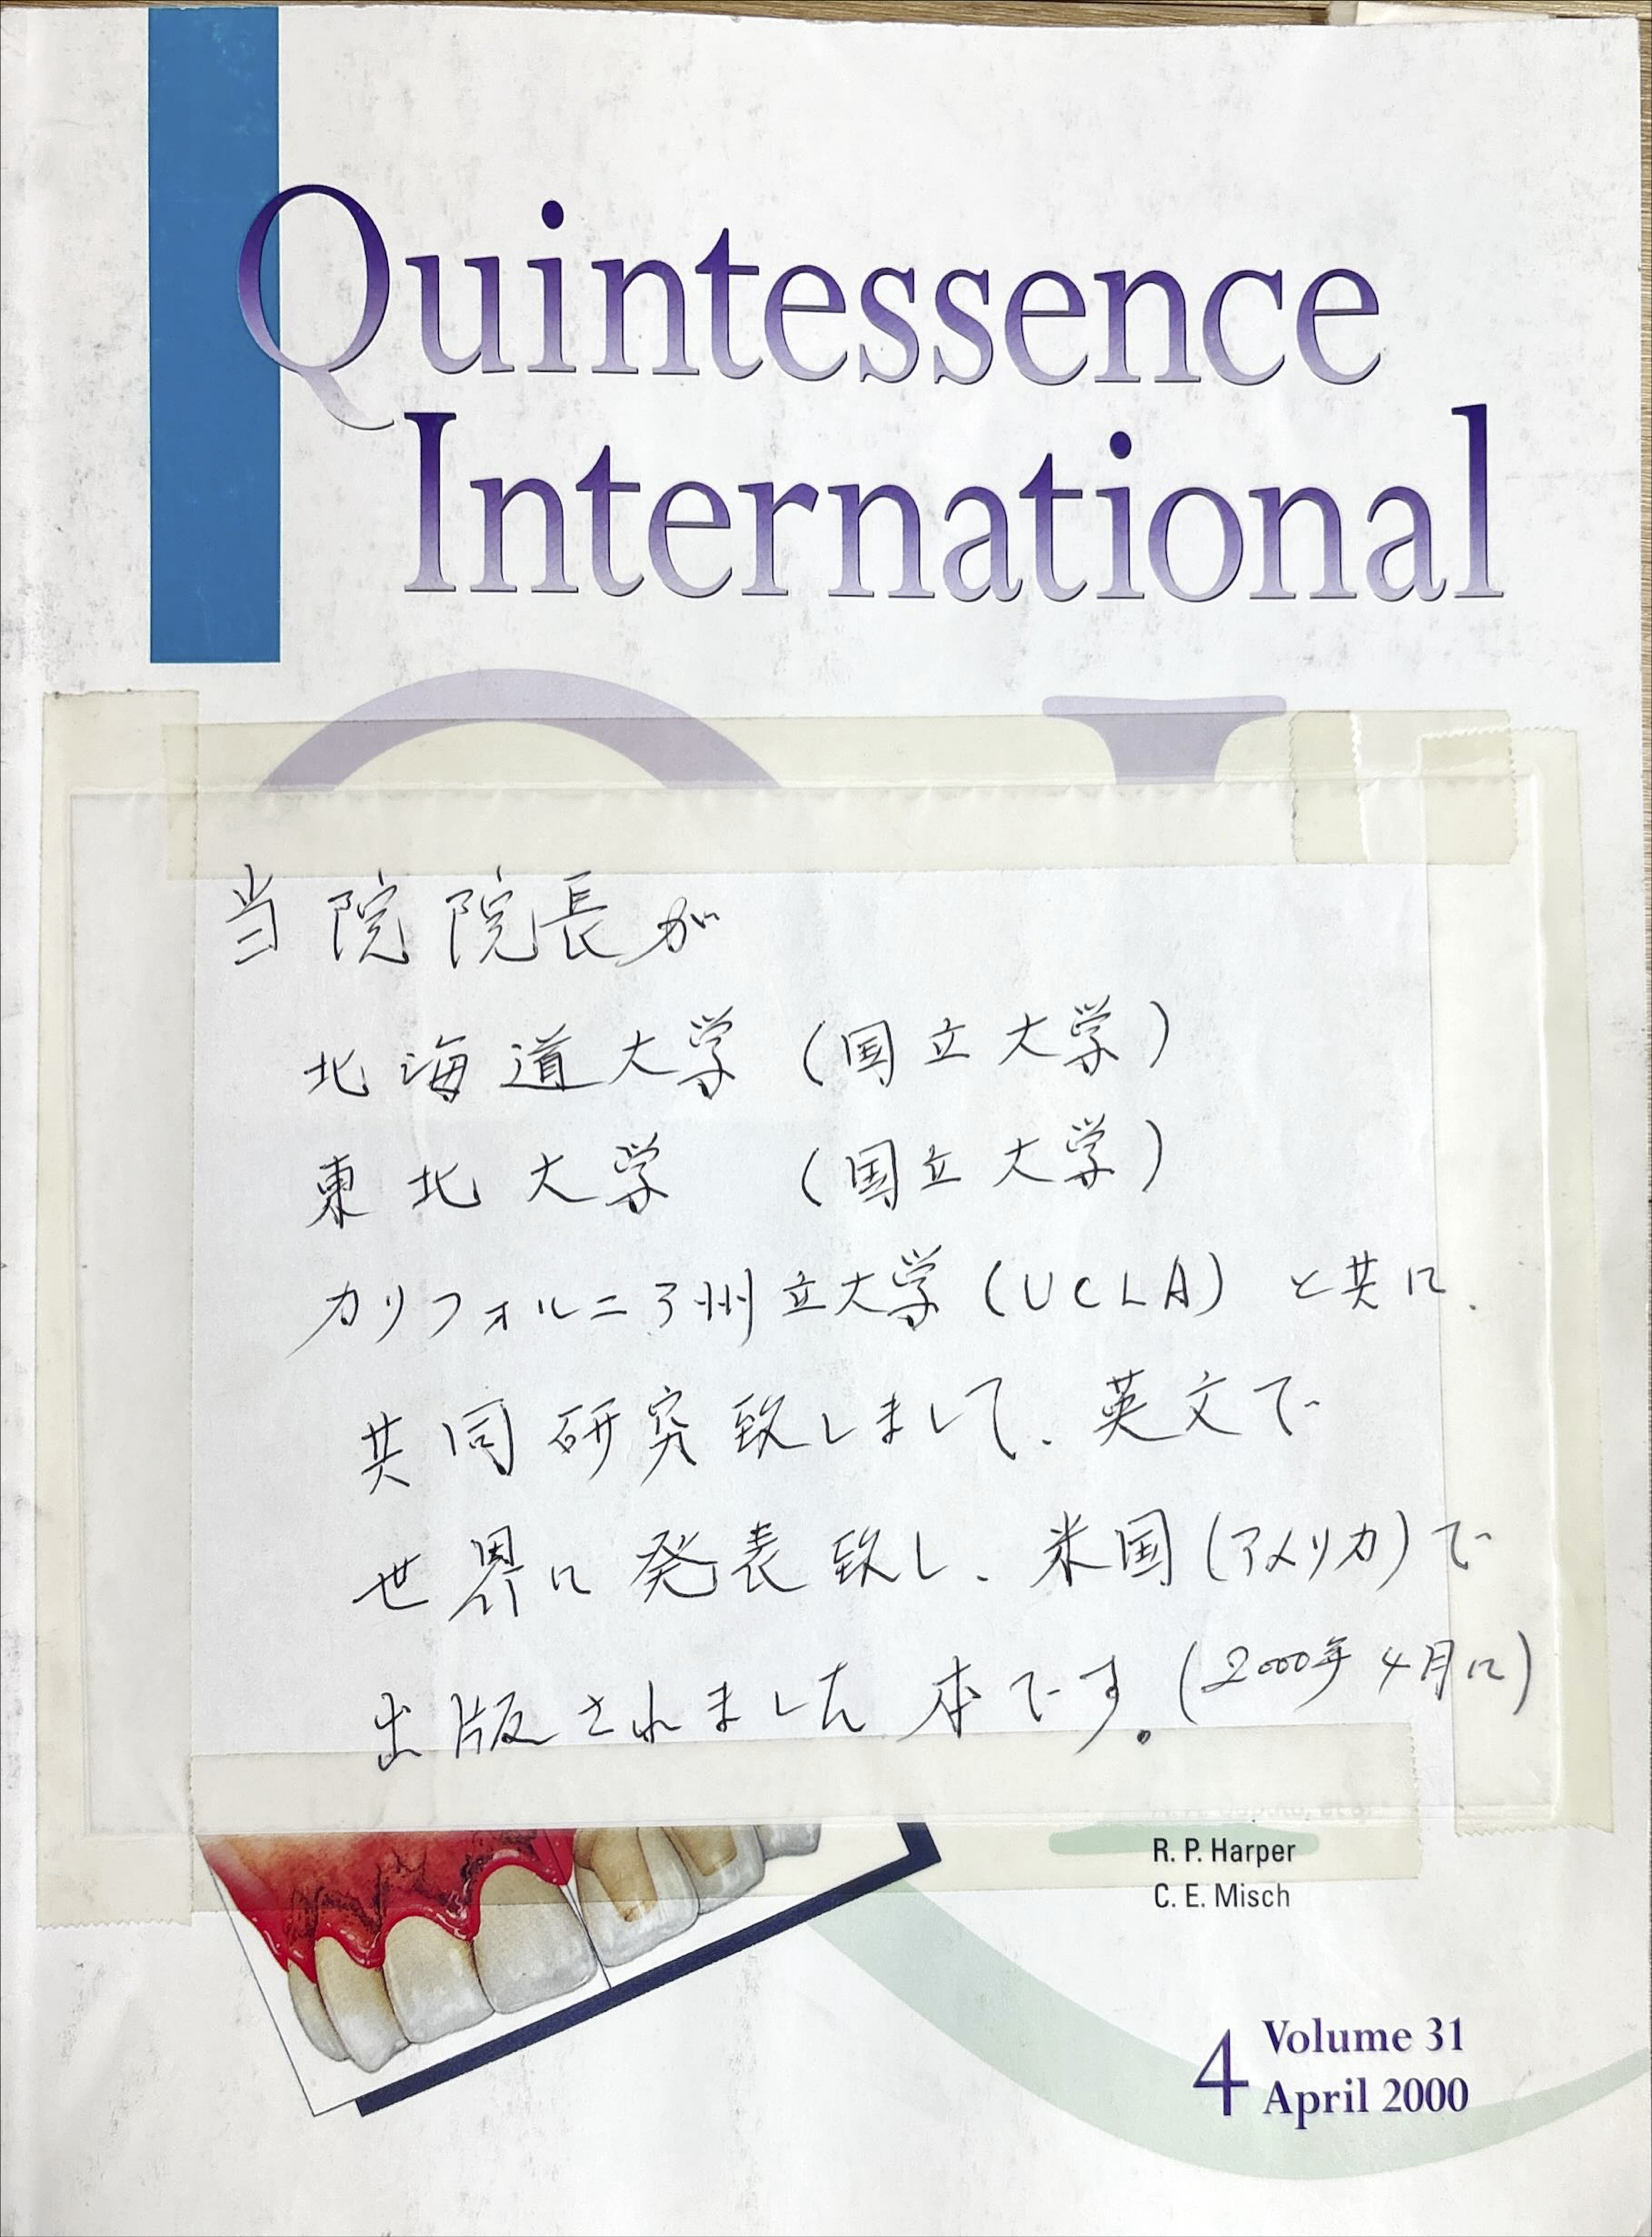 Quintessence
International
当院院長が
北海道大学(国立大学)
東北大学 (国立大学)
カリフォルニア州立大学(UCLA)と共に、
共同研究致しまして、英文で
世界に発表致し、米国(アメリカ)で
出版されました本です。(2000年4月に)
R. P. Harper
C. E. Misch
4 Volume 31
April 2000